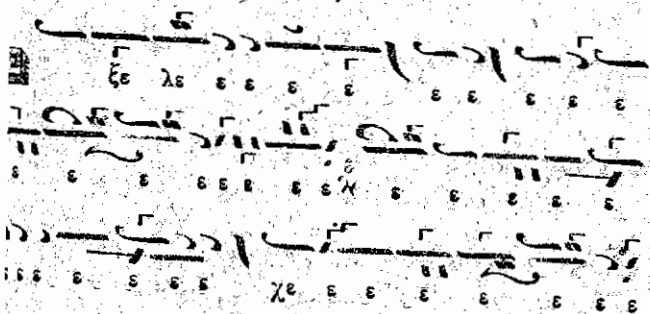 ξε λε ε ε ε ε ε ε ε ε ε
ε ε ε ε ε ε ε ε ε ε ε ε ε
ε ε ε ε ε ε ε χε ε ε ε ε ε ε ε